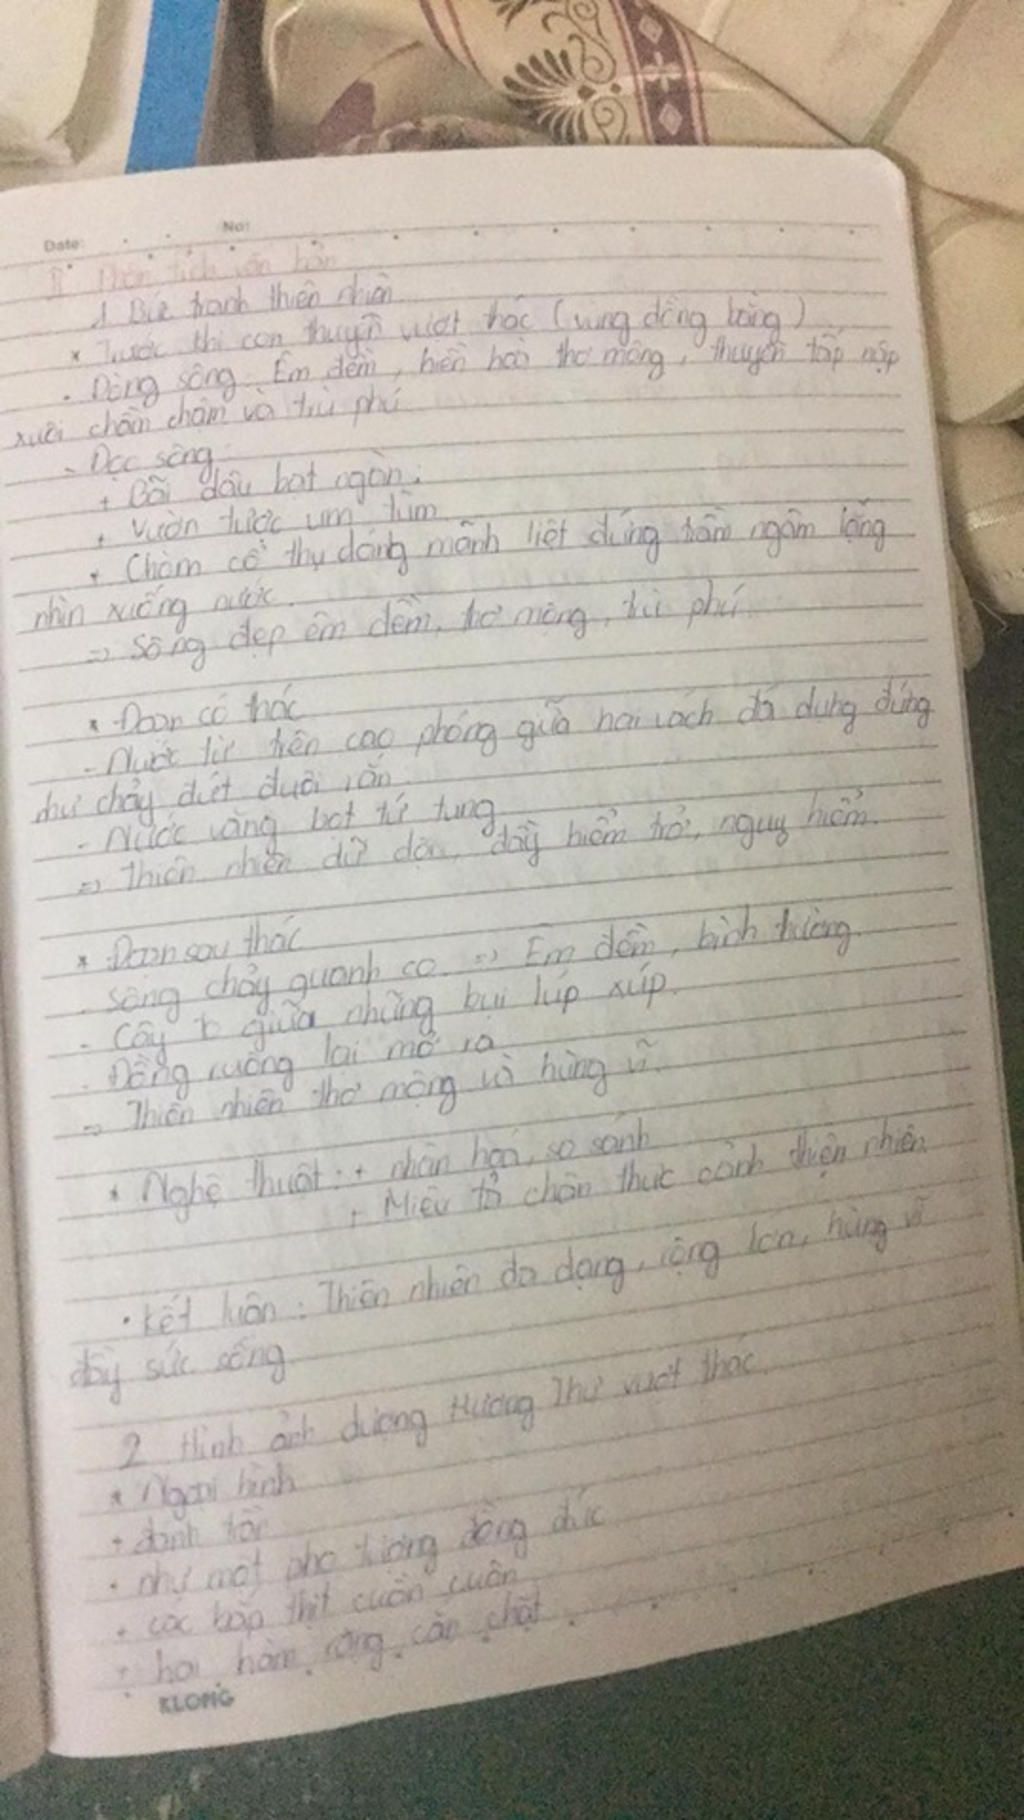 Date: No:
II Phân tích văn bản
1 Bức tranh thiên nhiên
* Trước khi con thuyền vượt thác (vùng đồng bằng)
- Dòng sông: Êm đềm, hiền hoà thơ mộng, thuyền tấp nập
xuôi chầm chậm và trù phú
- Dọc sông:
+ Bãi dâu bạt ngàn.
+ Vườn tược um tùm
+ Chòm cổ thụ dáng mãnh liệt đứng trầm ngâm lặng
nhìn xuống nước.
=> Sông đẹp êm đềm, thơ mộng, trù phú.
* Đoạn có thác
- Nước từ trên cao phóng giữa hai vách đá dựng đứng
như chảy đứt đuôi rắn.
- Nước văng bọt tứ tung
=> Thiên nhiên dữ dội, đầy hiểm trở, nguy hiểm.
* Đoạn sau thác
- Sông chảy quanh co => Êm đềm, bình thường.
- Cây to giữa những bụi lúp xúp.
- Đồng ruộng lại mở ra
=> Thiên nhiên thơ mộng và hùng vĩ.
* Nghệ thuật: + nhân hoá, so sánh
+ Miêu tả chân thực cảnh thiên nhiên.
• Kết luận: Thiên nhiên đa dạng, rộng lớn, hùng vĩ
đầy sức sống
2 Hình ảnh dượng Hương Thư vượt thác
* Ngoại hình
+ đánh trần
+ như một pho tượng đồng đúc
+ các bắp thịt cuồn cuộn
+ hai hàm răng cắn chặt
KLONG